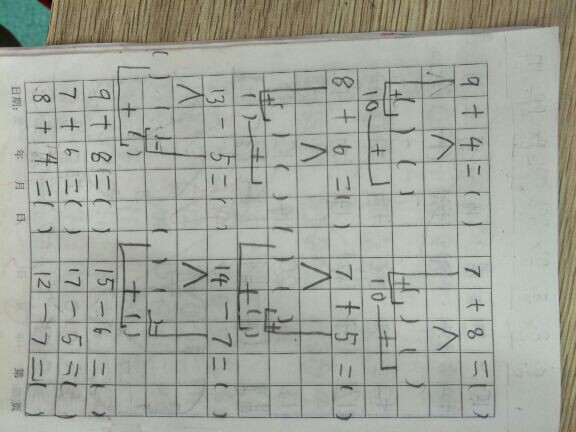 9 + 4 = ( )    7 + 8 = ( )
+ ( ) ( )    + ( ) ( )
10 +    10 +
8 + 6 = ( )    7 + 5 = ( )
+ ( ) ( )    ( ) ( ) +
( ) +    + ( )
13 - 5 = ( )    14 - 7 = ( )
( ) ( ) -    ( ) ( ) -
+ ( )    + ( )
9 + 8 = ( )    15 - 6 = ( )
7 + 6 = ( )    17 - 5 = ( )
8 + 4 = ( )    12 - 7 = ( )
日期: 年 月 日 第 页